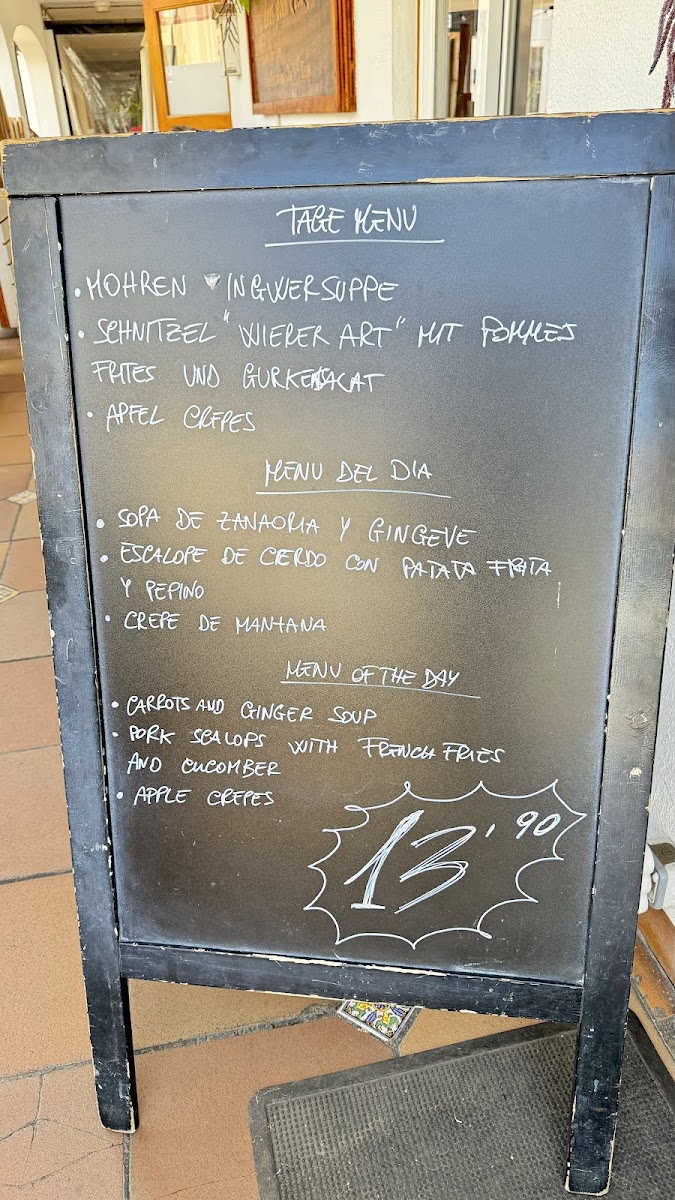 TAGE MENU
• MOHREN INGWERSUPPE
• SCHNITZEL "WIERER ART" MIT POMMES
FRITES UND GURKENSALAT
• APFEL CREPES
MENU DEL DIA
• SOPA DE ZANAORIA Y GINGEVE
• ESCALOPE DE CERDO CON PATATA FRITA
Y PEPINO
• CREPE DE MANTANA
MENU OF THE DAY
• CARROTS AND GINGER SOUP
• PORK SCALOPS WITH FRENCH FRIES
AND CUCOMBER
• APPLE CREPES
13,90